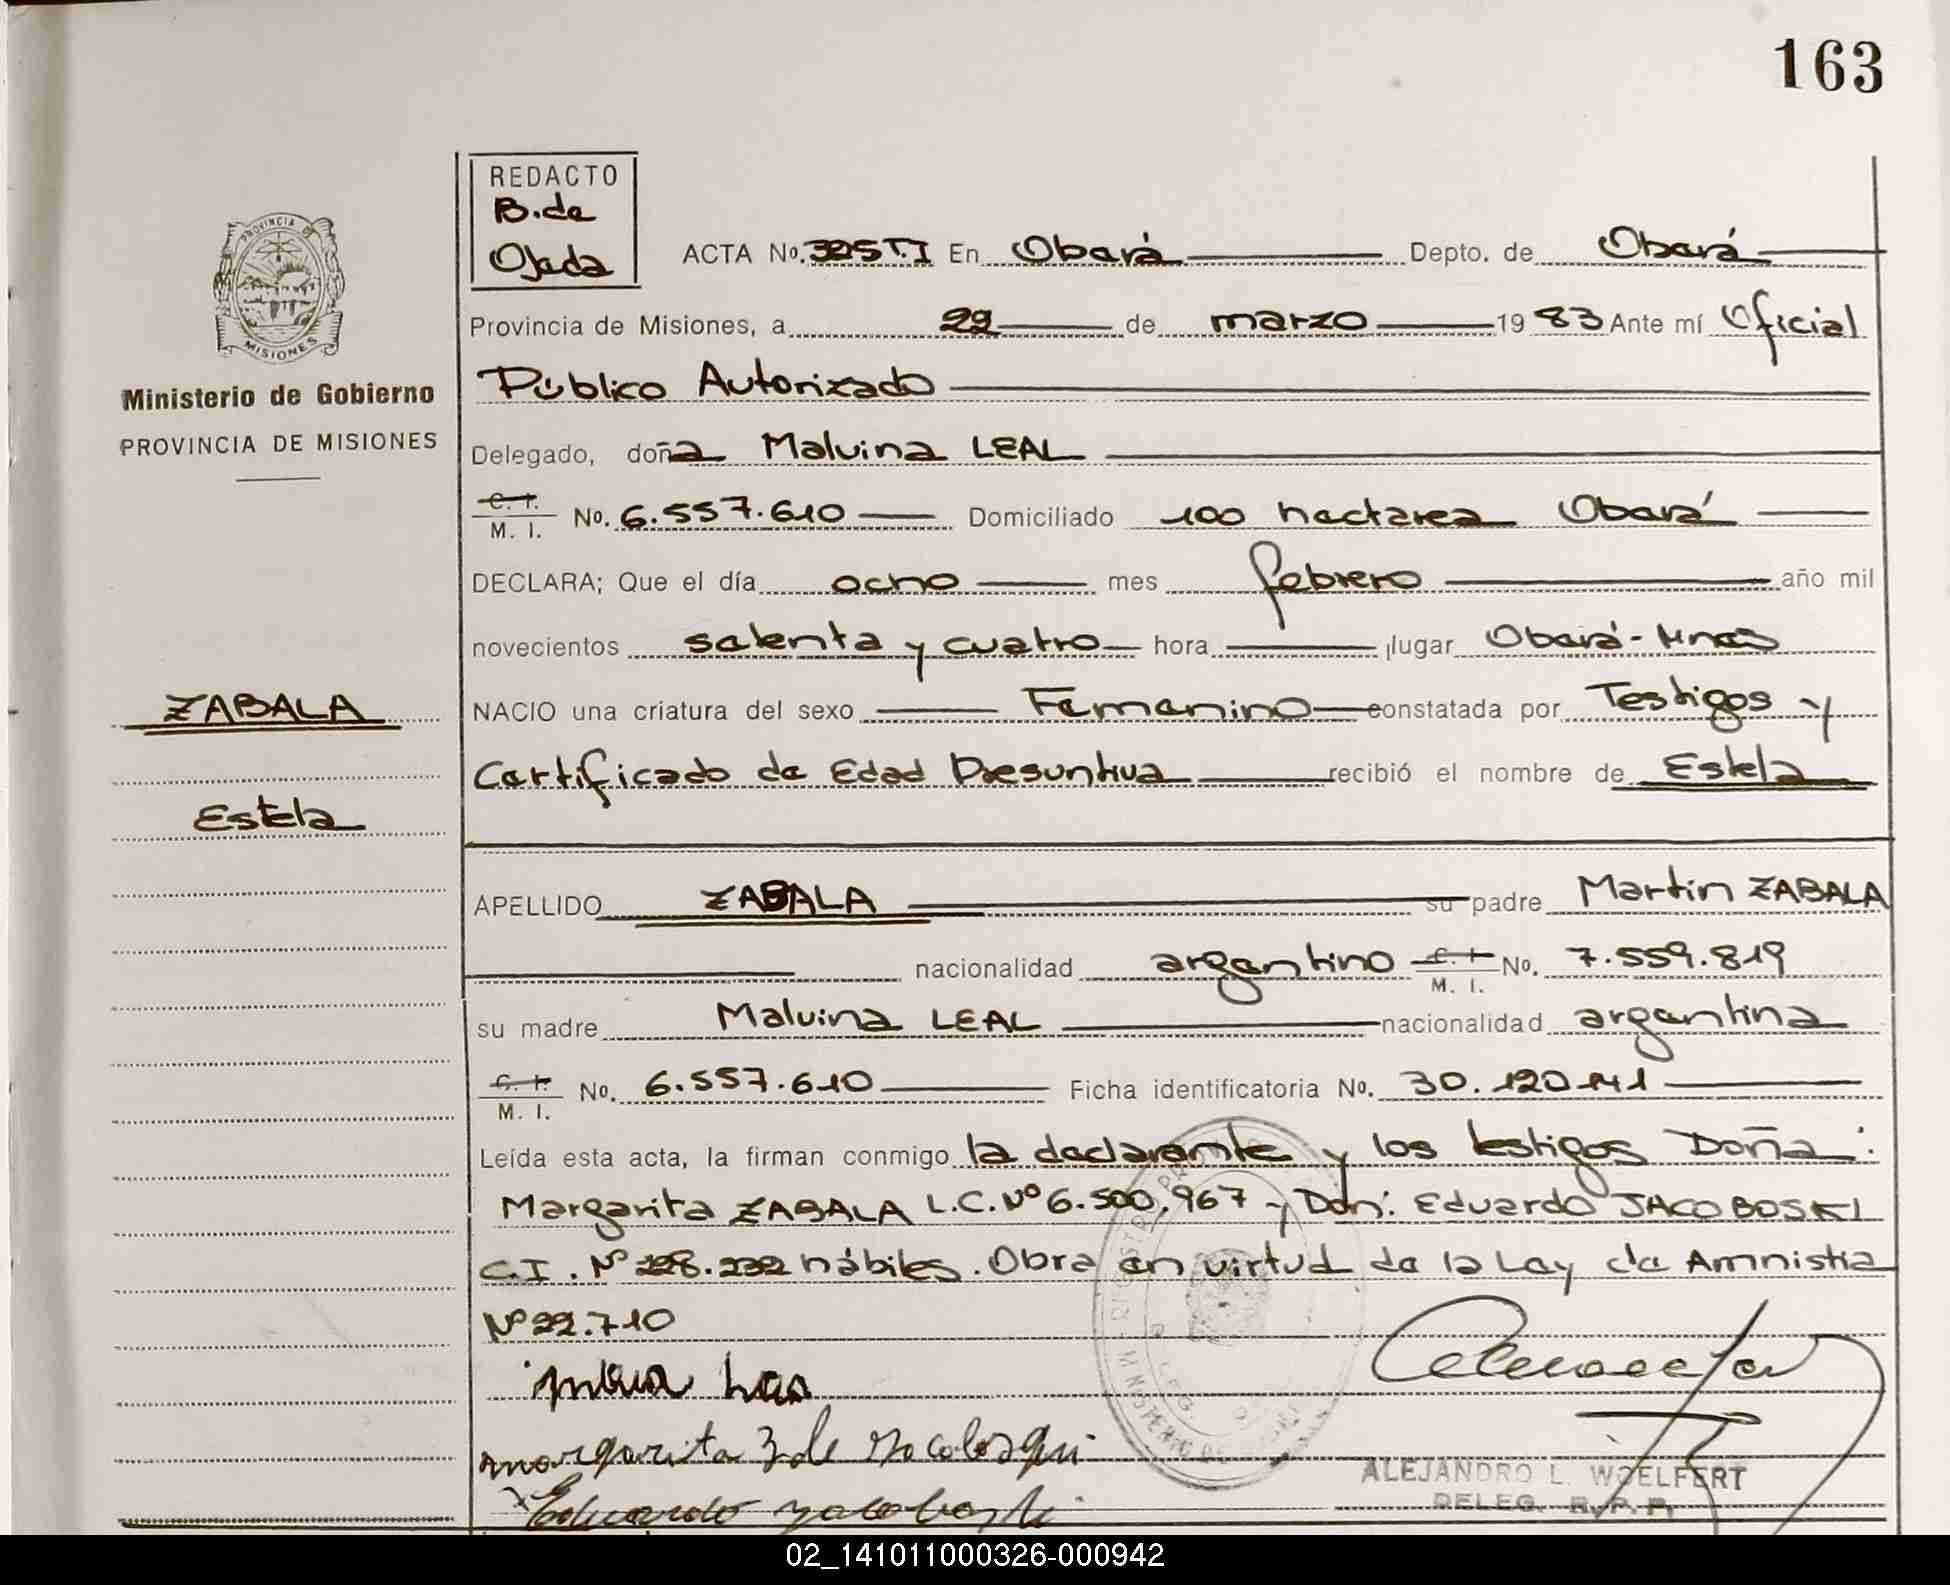 163
REDACTO
B. de
Ojeda
ACTA No. 325 T.I En Oberá Depto. de Oberá
Provincia de Misiones, a 22 de marzo 1983 Ante mí Oficial
Público Autorizado
Ministerio de Gobierno
PROVINCIA DE MISIONES
PROVINCIA DE
MISIONES
Delegado, doña Malvina LEAL
C. I.
M. I. No. 6.557.610 Domiciliado 100 hectarea Oberá
DECLARA; Que el día ocho mes febrero año mil
novecientos setenta y cuatro hora lugar Oberá-Mnes
ZABALA
NACIO una criatura del sexo Femenino constatada por Testigos y
Certificado de Edad Presuntiva recibió el nombre de Estela
Estela
APELLIDO ZABALA su padre Martin ZABALA
nacionalidad argentino C. I. M. I. No. 7.559.819
su madre Malvina LEAL nacionalidad argentina
C. I.
M. I. No. 6.557.610 Ficha identificatoria No. 30.120.141
Leída esta acta, la firman conmigo la declarante y los testigos Doña:
Margarita ZABALA L.C. Nº 6.500.967 y Don: Eduardo JACOBOSKI
C.I. Nº 228.232 hábiles. Obra en virtud de la Ley de Amnistia
Nº 22.710
Margarita Z de
Eduardo
ALEJANDRO L. WOELFERT
DELEG. R. P. P.
02_141011000326-000942